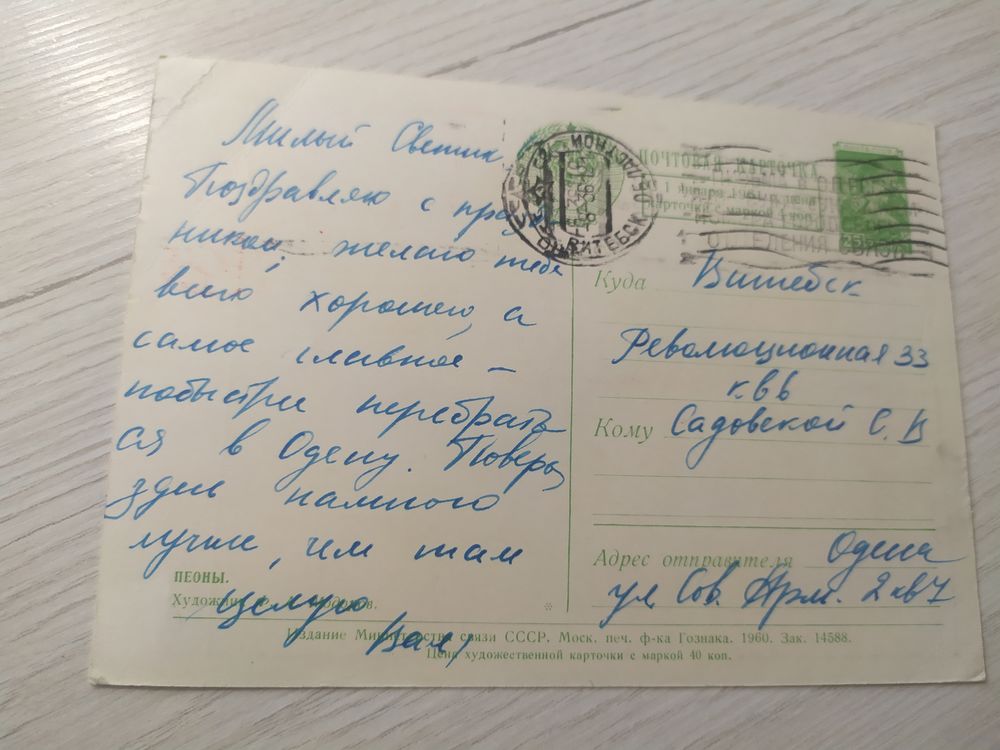 Милый Светик,
Поздравляю с празд
ником, желаю тебе
всего хорошего, а
самое главное –
побыстрее перебрать
ся в Одессу. Поверь,
здесь намного
лучше, чем там
целую
Валя
ПЕОНЫ.
Художник
ПОЧТОВАЯ КАРТОЧКА
с 1 января 1961 г. цена
карточки с маркой 4 коп.
ВИТЕБСК ОБЛАСТНОЙ
ОТДЕЛЕНИЯ СВЯЗИ
Куда Витебск
Революционная 33
кв 6
Кому Садовской С. В
Адрес отправителя Одесса
ул. Сов. Арм. 2 кв 7
Издание Министерства связи СССР. Моск. печ. ф-ка Гознака. 1960. Зак. 14588.
Цена художественной карточки с маркой 40 коп.